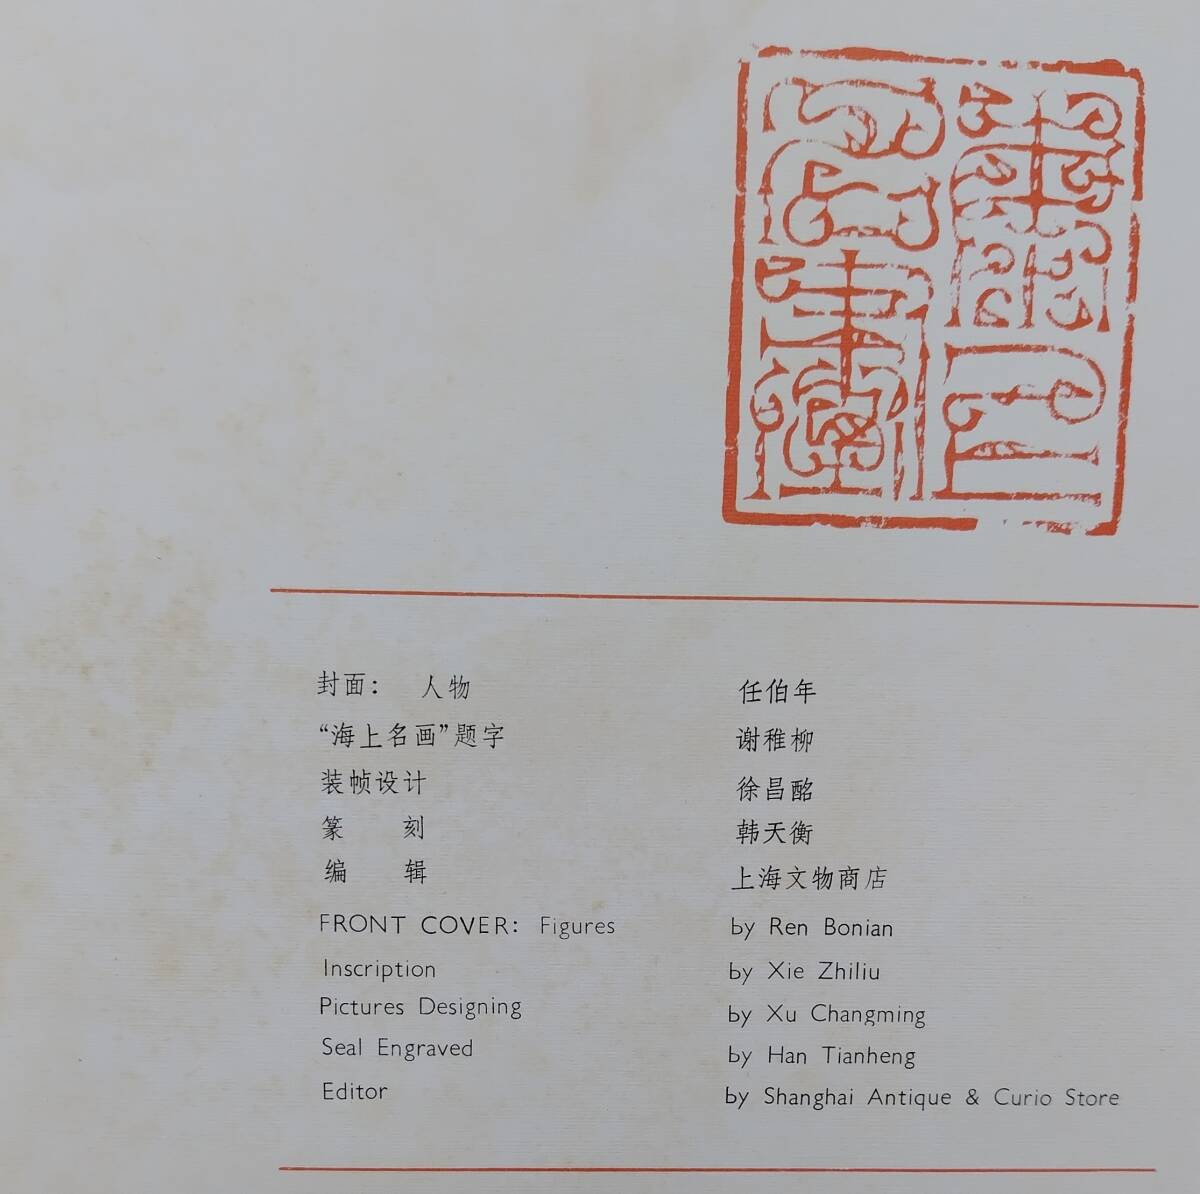 封面： 人物 任伯年
“海上名画”题字 谢稚柳
装帧设计 徐昌酩
篆 刻 韩天衡
编 辑 上海文物商店
FRONT COVER: Figures by Ren Bonian
Inscription by Xie Zhiliu
Pictures Designing by Xu Changming
Seal Engraved by Han Tianheng
Editor by Shanghai Antique & Curio Store